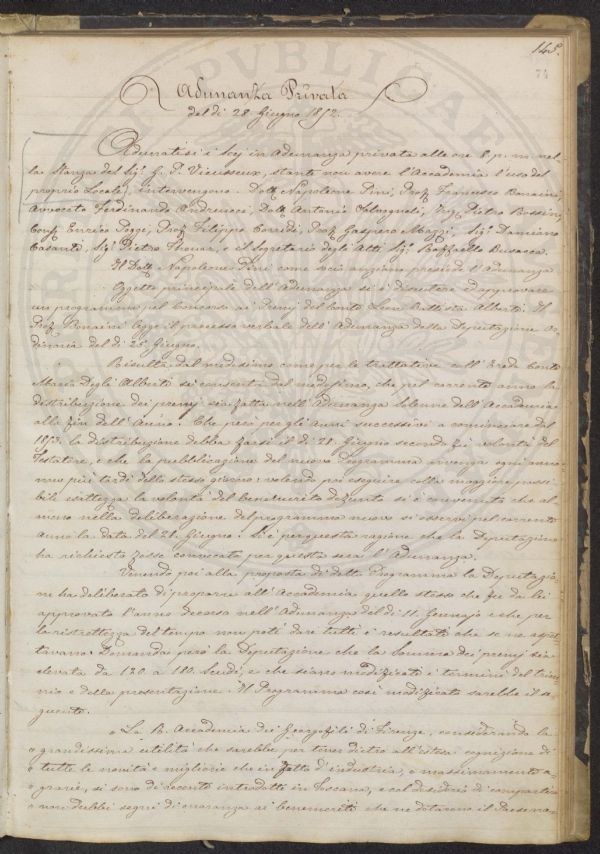 145.
74
Adunanza Privata
del dì 28. Giugno 1852.
Adunatisi i Socj in adunanza privata alle ore 8. p. m. nel-
la Stanza del Sig.r G. P. Vieusseux, stante non avere l'Accademia l'uso del
proprio Locale, intervengono. Dott. Napoleone Pini, Prof. Francesco Bonaini,
Avvocato Ferdinando Andreucci, Dott. Antonio Salvagnoli, Pietro Rossini,
Enrico Poggi, Prof. Filippo Corridi, Prof. Gaspero Mazzi, Sig.r Damiano
Casanti, Sig.r Pietro Thouar, e il Segretario degli Atti Sig.r Raffaello Busacca.
Il Dott. Napoleone Pini come socio anziano presiede l'Adunanza
Oggetto principale dell'Adunanza si è discutere ed approvare
un programma pel Concorso ai Premj del Conte Leon Battista Alberti. Il
Prof. Bonaini legge il processo verbale dell'Adunanza della Deputazione Or-
dinaria del dì 25 Giugno.
Risulta dal medesimo come per le trattative coll'Erede Conte
Mario degli Alberti si consenta dal medesimo, che pel corrente anno la
distribuzione dei premj sia fatta nell'Adunanza Solenne dell'Accademia
alla fin dell'Anno. Che però per gli anni successivi a cominciare dal
1853. la distribuzione debba farsi il dì 28. Giugno secondo la volontà del
Testatore, e che la pubblicazione del nuovo Programma avvenga ogni anno
non più tardi dello stesso giorno: volendo poi eseguire colla maggiore possi-
bile esattezza la volontà del benemerito defunto si è convenuto che al-
meno nella deliberazione del programma nuovo si osservi pel corrente
anno la data del 28. Giugno. Si è per questa ragione che la Deputazione
ha richiesto fosse convocata per questa sera l'Adunanza.
Venendo poi alla proposta di detto Programma la Deputazio-
ne ha deliberato di proporre all'Accademia quello stesso che fu da lei
approvato l'anno decorso nell'Adunanza del dì 11. Gennajo e che per
la ristrettezza del tempo non potè dare tutti i resultati che se ne aspet-
tavano. Domanda però la Deputazione che la Somma dei premj sia
elevata da 120. a 180. Scudi, e che siano modificati i termini del trien-
nio e della presentazione. Il Programma così modificato sarebbe il se-
guente.
" La R. Accademia dei Georgofili di Firenze, considerando la
" grandissima utilità che sarebbe per tener dietro all'estesa cognizione di
" tutte le novità e migliorie che in fatto d'industria, e massimamente a-
" graria, si sono di recente introdotte in Toscana, e col desiderio di compartire
" non dubbi segni di onoranza ai benemeriti che ne dotarono il Paese